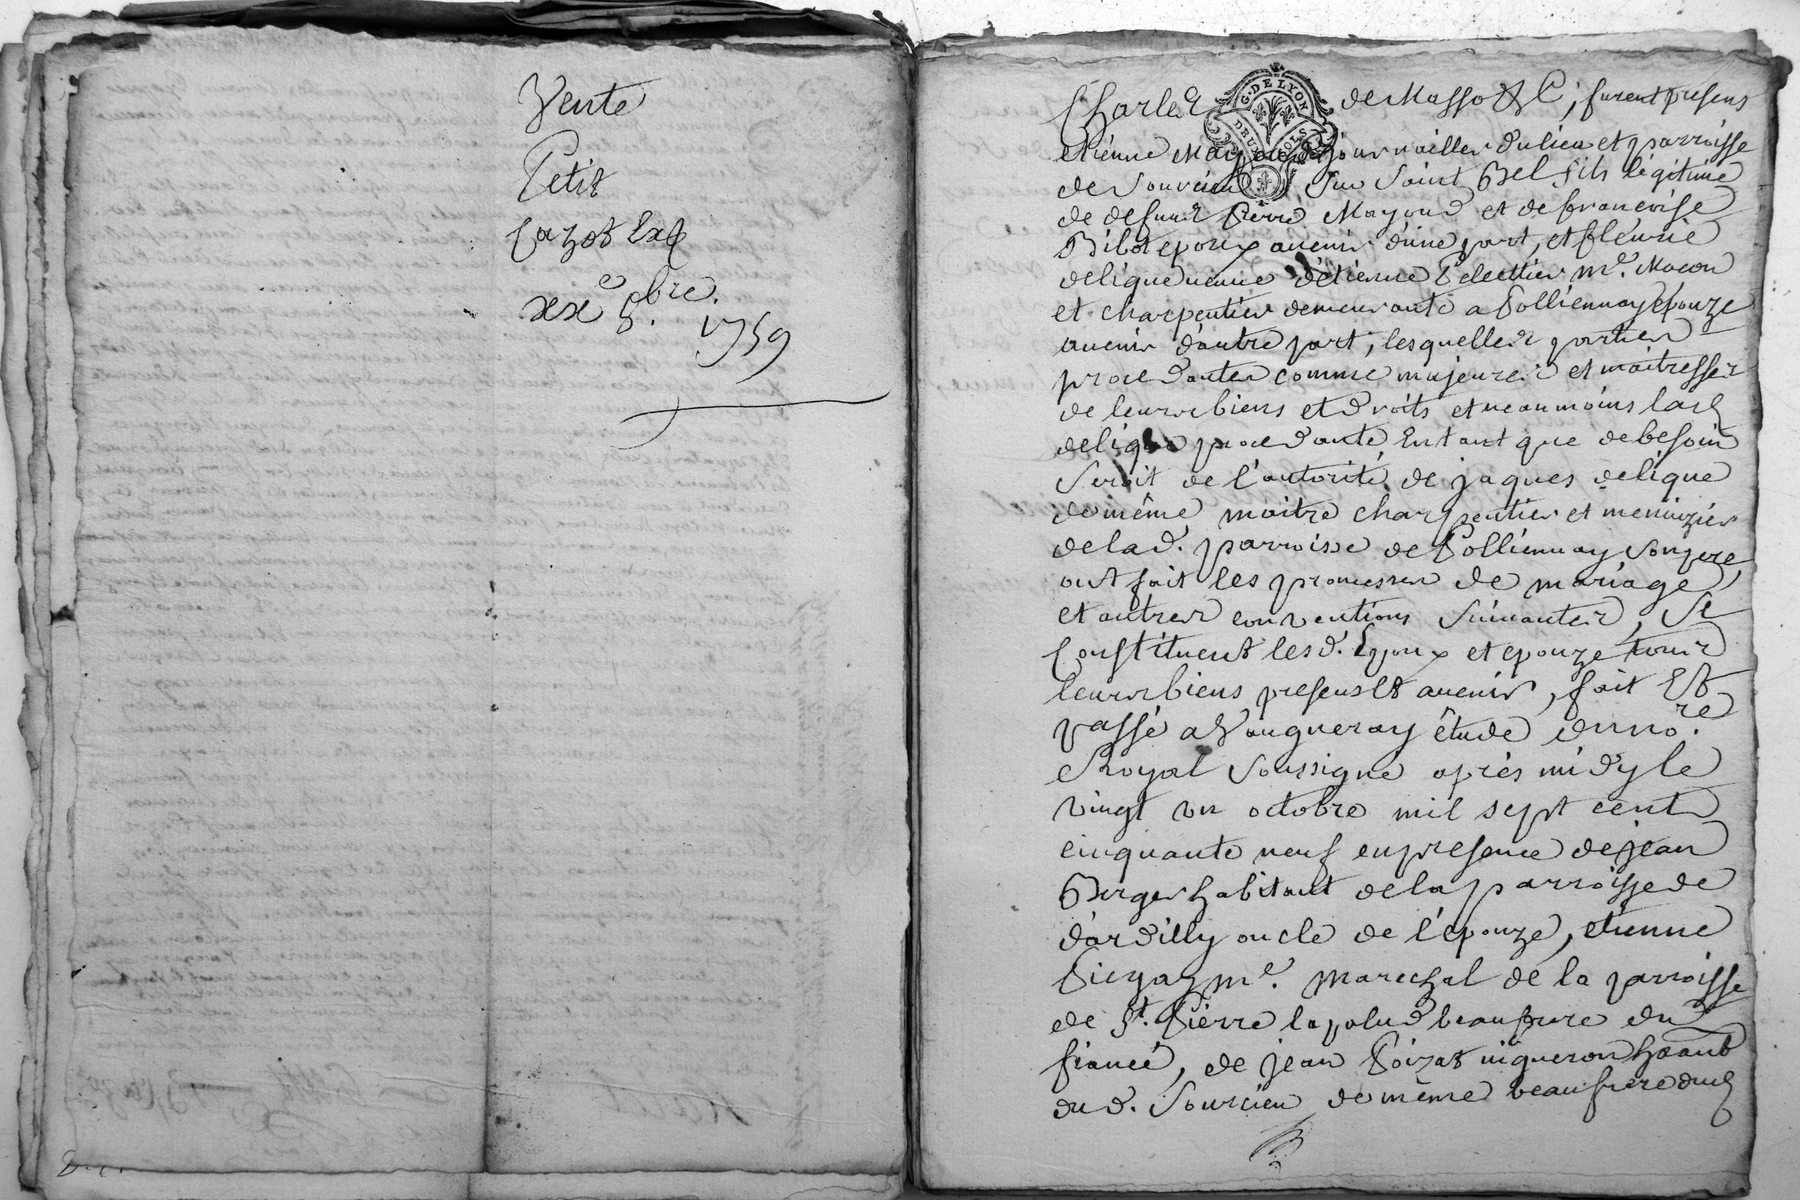 Vente
Petit
Cazot Exp
xxe 8.bre.
1759
Charles de Masso &c, furent presens
G. DE LYON
DEUX SOLS
etienne Mayoud journaillier du lieu et parroisse
de Sourcieu Sur Saint Bel fils légitime
de defunt Pierre Mayoud et de francoise
Bilot epoux avenir d'une part, et fleurie
deligue veuve d'étienne Pelettier me. Macon
et charpentier demeurante a Polliennay epouze
avenir d'autre part, lesquelles parties
procedantes comme majeures et maitresses
de leurs biens et droits et neanmoins lad
deligue procedante Entant que de besoin
Seroit de l'autorité de jaques deligue
de même maitre charpentier et menuzier
de lad. parroisse de Polliennay Son pere,
ont fait les promesses de mariage,
et autres conventions Suivantes, Se
Constituent lesd. Epoux et epouze tous
leurs biens presens et avenir, fait Et
passé a Vaugneray étude du no.re
Royal Soussigne après midy le
vingt un octobre mil sept cent
cinquante neuf en presence de jean
Berger habitant de la parroisse de
d'ardilly oncle de l'épouze, etienne
me. marechal de la parroisse
de St. Pierre la palud beaufrere dud
fiancé, de jean Poizat vigneron hâant
dud. Sourcieu de même beaufrere dud